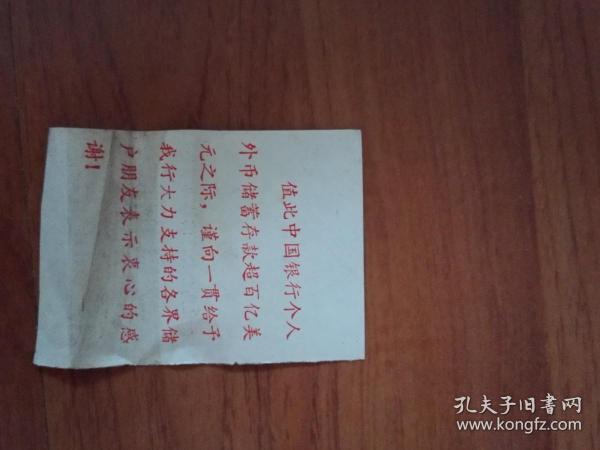 值此中国银行个人
外币储蓄存款超百亿美
元之际，谨向一贯给予
我行大力支持的各界储
户朋友表示衷心的感
谢！
孔夫子旧书网
www.kongfz.com